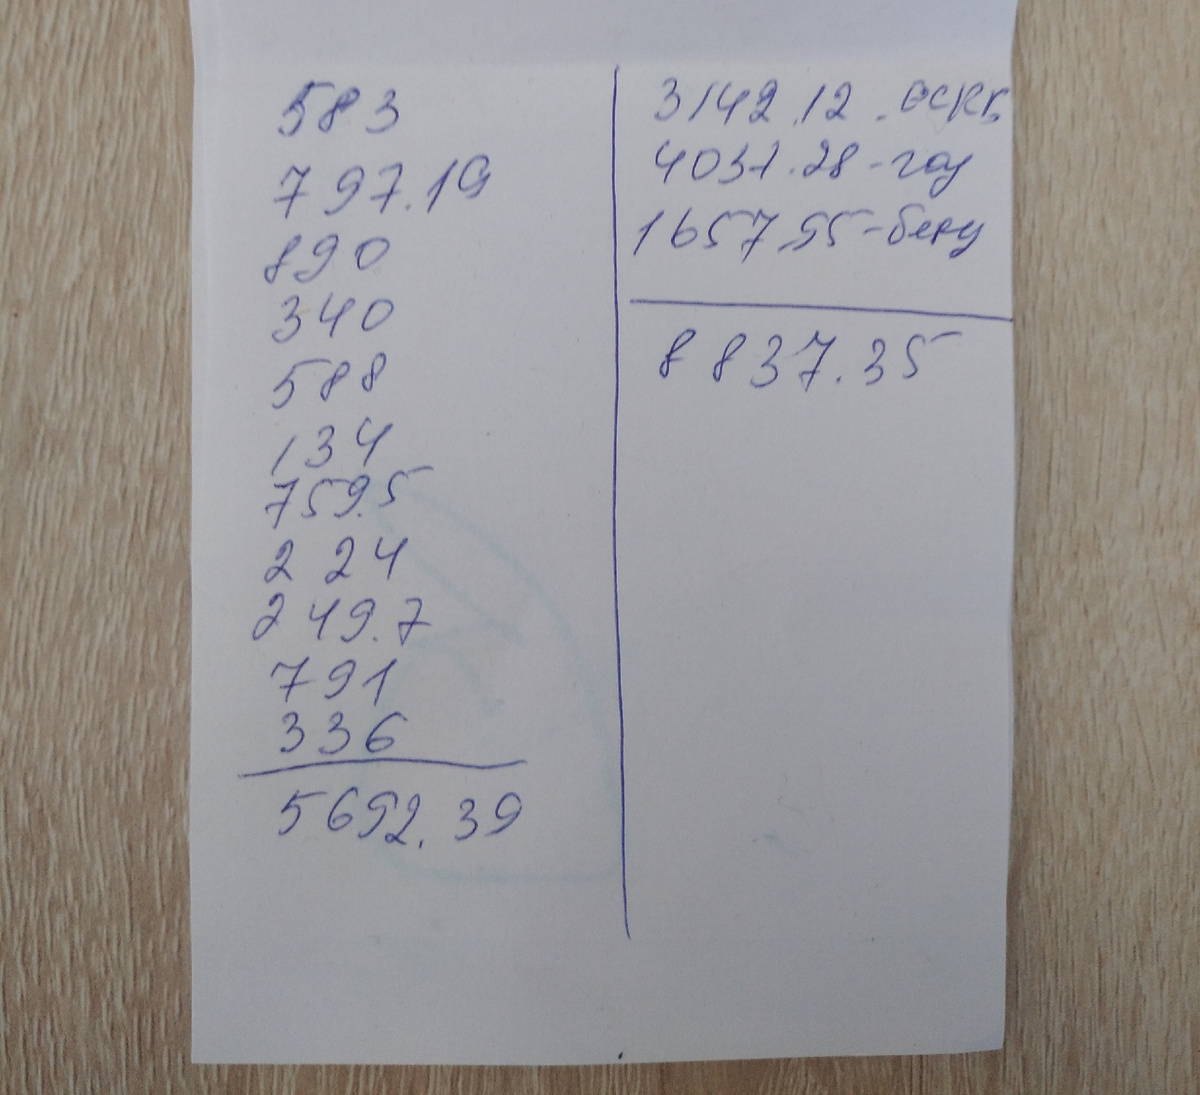 583
797.19
890
340
588
134
759.5
224
249.7
791
336
5692.39
3142.12
4037.28 -
1657.95 -
8837.35